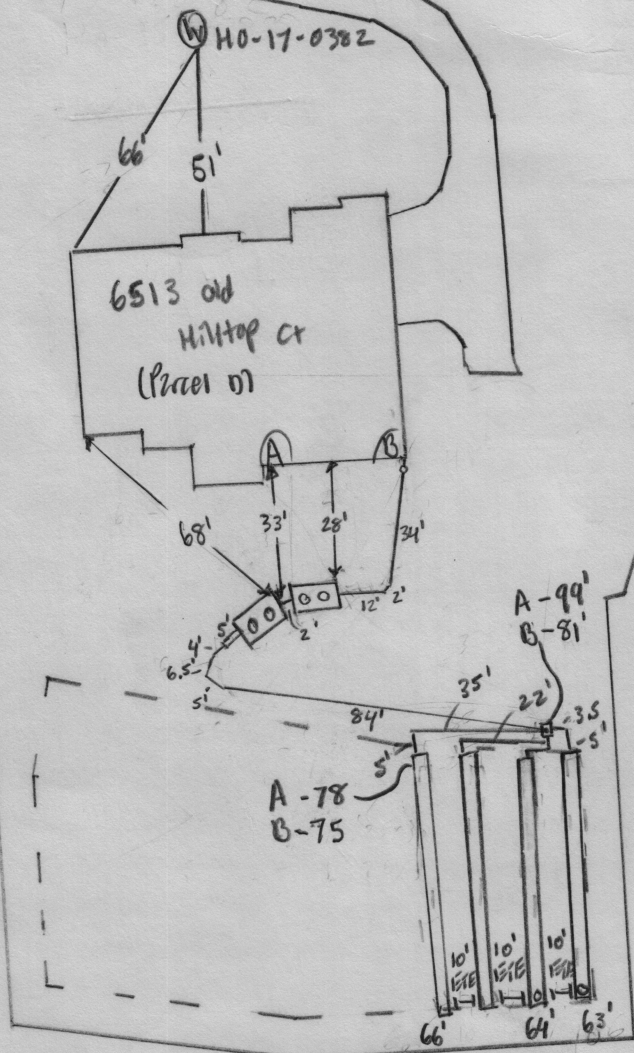 W HO-17-0382
66'
51'
6513 old
Hilltop Ct
(Parcel D)
A
B
68'
33'
28'
34'
12' 2'
2'
5'
4'
6.5'
5'
A-99'
B-81'
35'
22'
84'
3.5
5'
5'
A-78
B-75
10' 10' 10'
ETE ETE ETE
66' 64' 63'